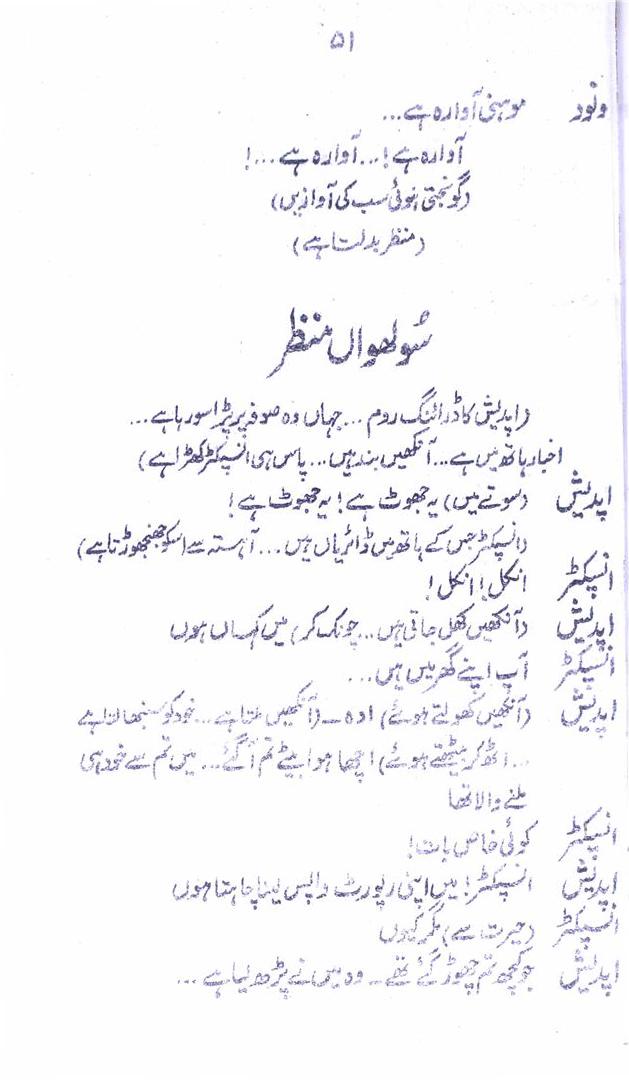 ۵۱
ونود موہنی آوارہ ہے...
آوارہ ہے!...آوارہ ہے...!
(گونجتی ہوئی سب کی آوازیں)
(منظر بدلتا ہے)
سُولھواں منظر
(اپدیش کا ڈرائنگ روم...جہاں وہ صوفے پر پڑا سو رہا ہے...
اخبار ہاتھ میں ہے...آنکھیں بند ہیں...پاس ہی انسپکٹر کھڑا ہے)
اپدیش (سوتے میں) یہ جھوٹ ہے! یہ جھوٹ ہے!
(انسپکٹر جس کے ہاتھ میں ڈائریاں ہیں...آہستہ سے اسکو جھنجھوڑتا ہے)
انسپکٹر انکل! انکل!
اپدیش (آنکھیں کھل جاتی ہیں...چونک کر) میں کہاں ہوں
انسپکٹر آپ اپنے گھر میں ہیں...
اپدیش (آنکھیں کھولتے ہوئے) اوہ ــ (آنکھیں ملتا ہے...خود کو سنبھالتا ہے
...اٹھ کر بیٹھتے ہوئے) اچھا ہوا بیٹے تم آگئے...میں تم سے خود ہی
ملنے والا تھا
انسپکٹر کوئی خاص بات!
اپدیش انسپکٹر! میں اپنی رپورٹ واپس لینا چاہتا ہوں
انسپکٹر (حیرت سے) مگر کیوں
اپدیش جو کچھ تم چھوڑ گئے تھے ــ وہ میں نے پڑھ لیا ہے...